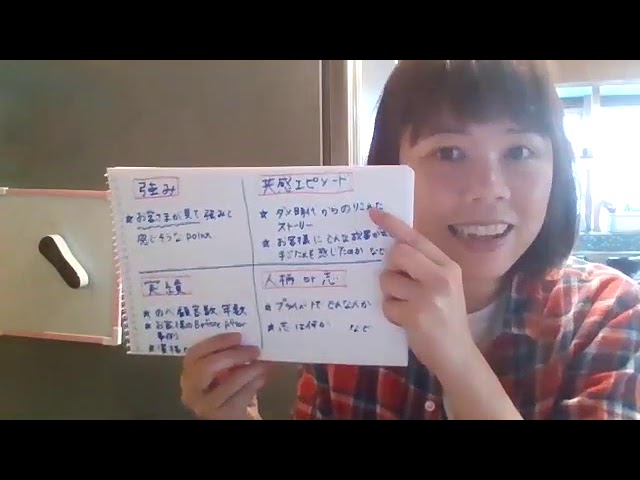 強み
★ お客さまが見て強みと
感じそうな point
共感エピソード
★ ダメ時代からのりこえた
ストーリー
★ お客様にどんな故事が
手ごたえを感じたのか など
実績
★ のべ顧客数、年数
★ お客様のBefore After
事例
★ 資格
人柄 or 志
★ プライベートでどんな人か
★ 志は何か など